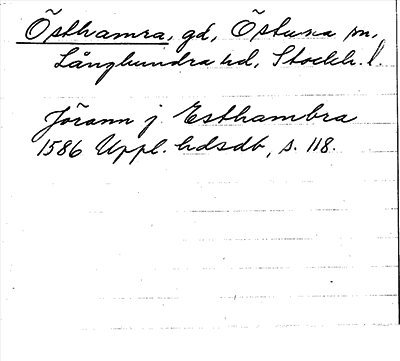 Östhamra, gd, Östuna sn,
Långhundra hd, Stockh. l.
Jörann j Esthambra
1586 Uppl. hdsdb, s. 118.